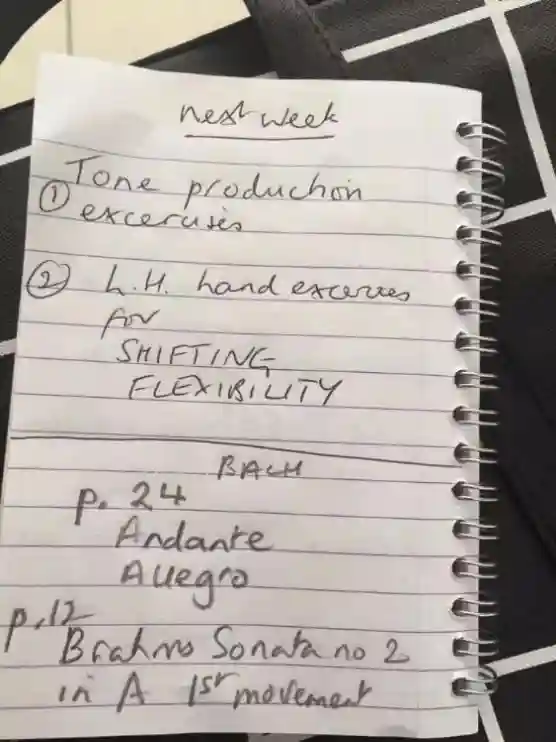 next week
Tone production
① excerusies
② L.H. hand excerves
for
SHIFTING
FLEXIBILITY
BACH
p. 24
Andante
Allegro
p.12
Brahms Sonata no 2
in A 1st movement